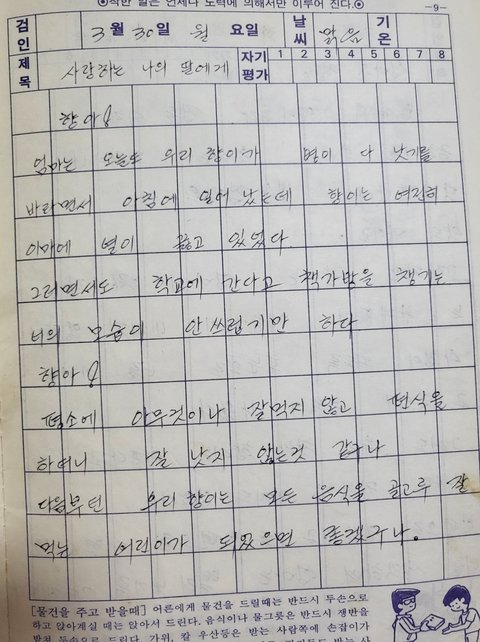 ◉착한 일은 언제나 노력에 의해서만 이루어 진다.◉ -9-
검인 3월 30일 월요일 날씨 맑음 기온
제목 사랑하는 나의 딸에게 자기평가 1 2 3 4 5 6 7 8
향아!
엄마는 오늘도 우리 향이가 병이 다 낫기를
바라면서 아침에 일어 났는데 향이는 여전히
이마에 열이 끓고 있었다
그러면서도 학교에 간다고 책가방을 챙기는
너의 모습이 안쓰럽기만 하다
향아!
평소에 아무것이나 잘먹지 않고 편식을
하더니 잘 낫지 않는것 같구나
다음부턴 우리 향이는 모든 음식을 골고루 잘
먹는 어린이가 되었으면 좋겠구나.
[물건을 주고 받을때] 어른에게 물건을 드릴때는 반드시 두손으로
하고 앉아계실 때는 앉아서 드린다. 음식이나 물그릇은 반드시 쟁반을
받쳐 두손으로 드린다. 가위, 칼 우산등은 받는 사람쪽에 손잡이가